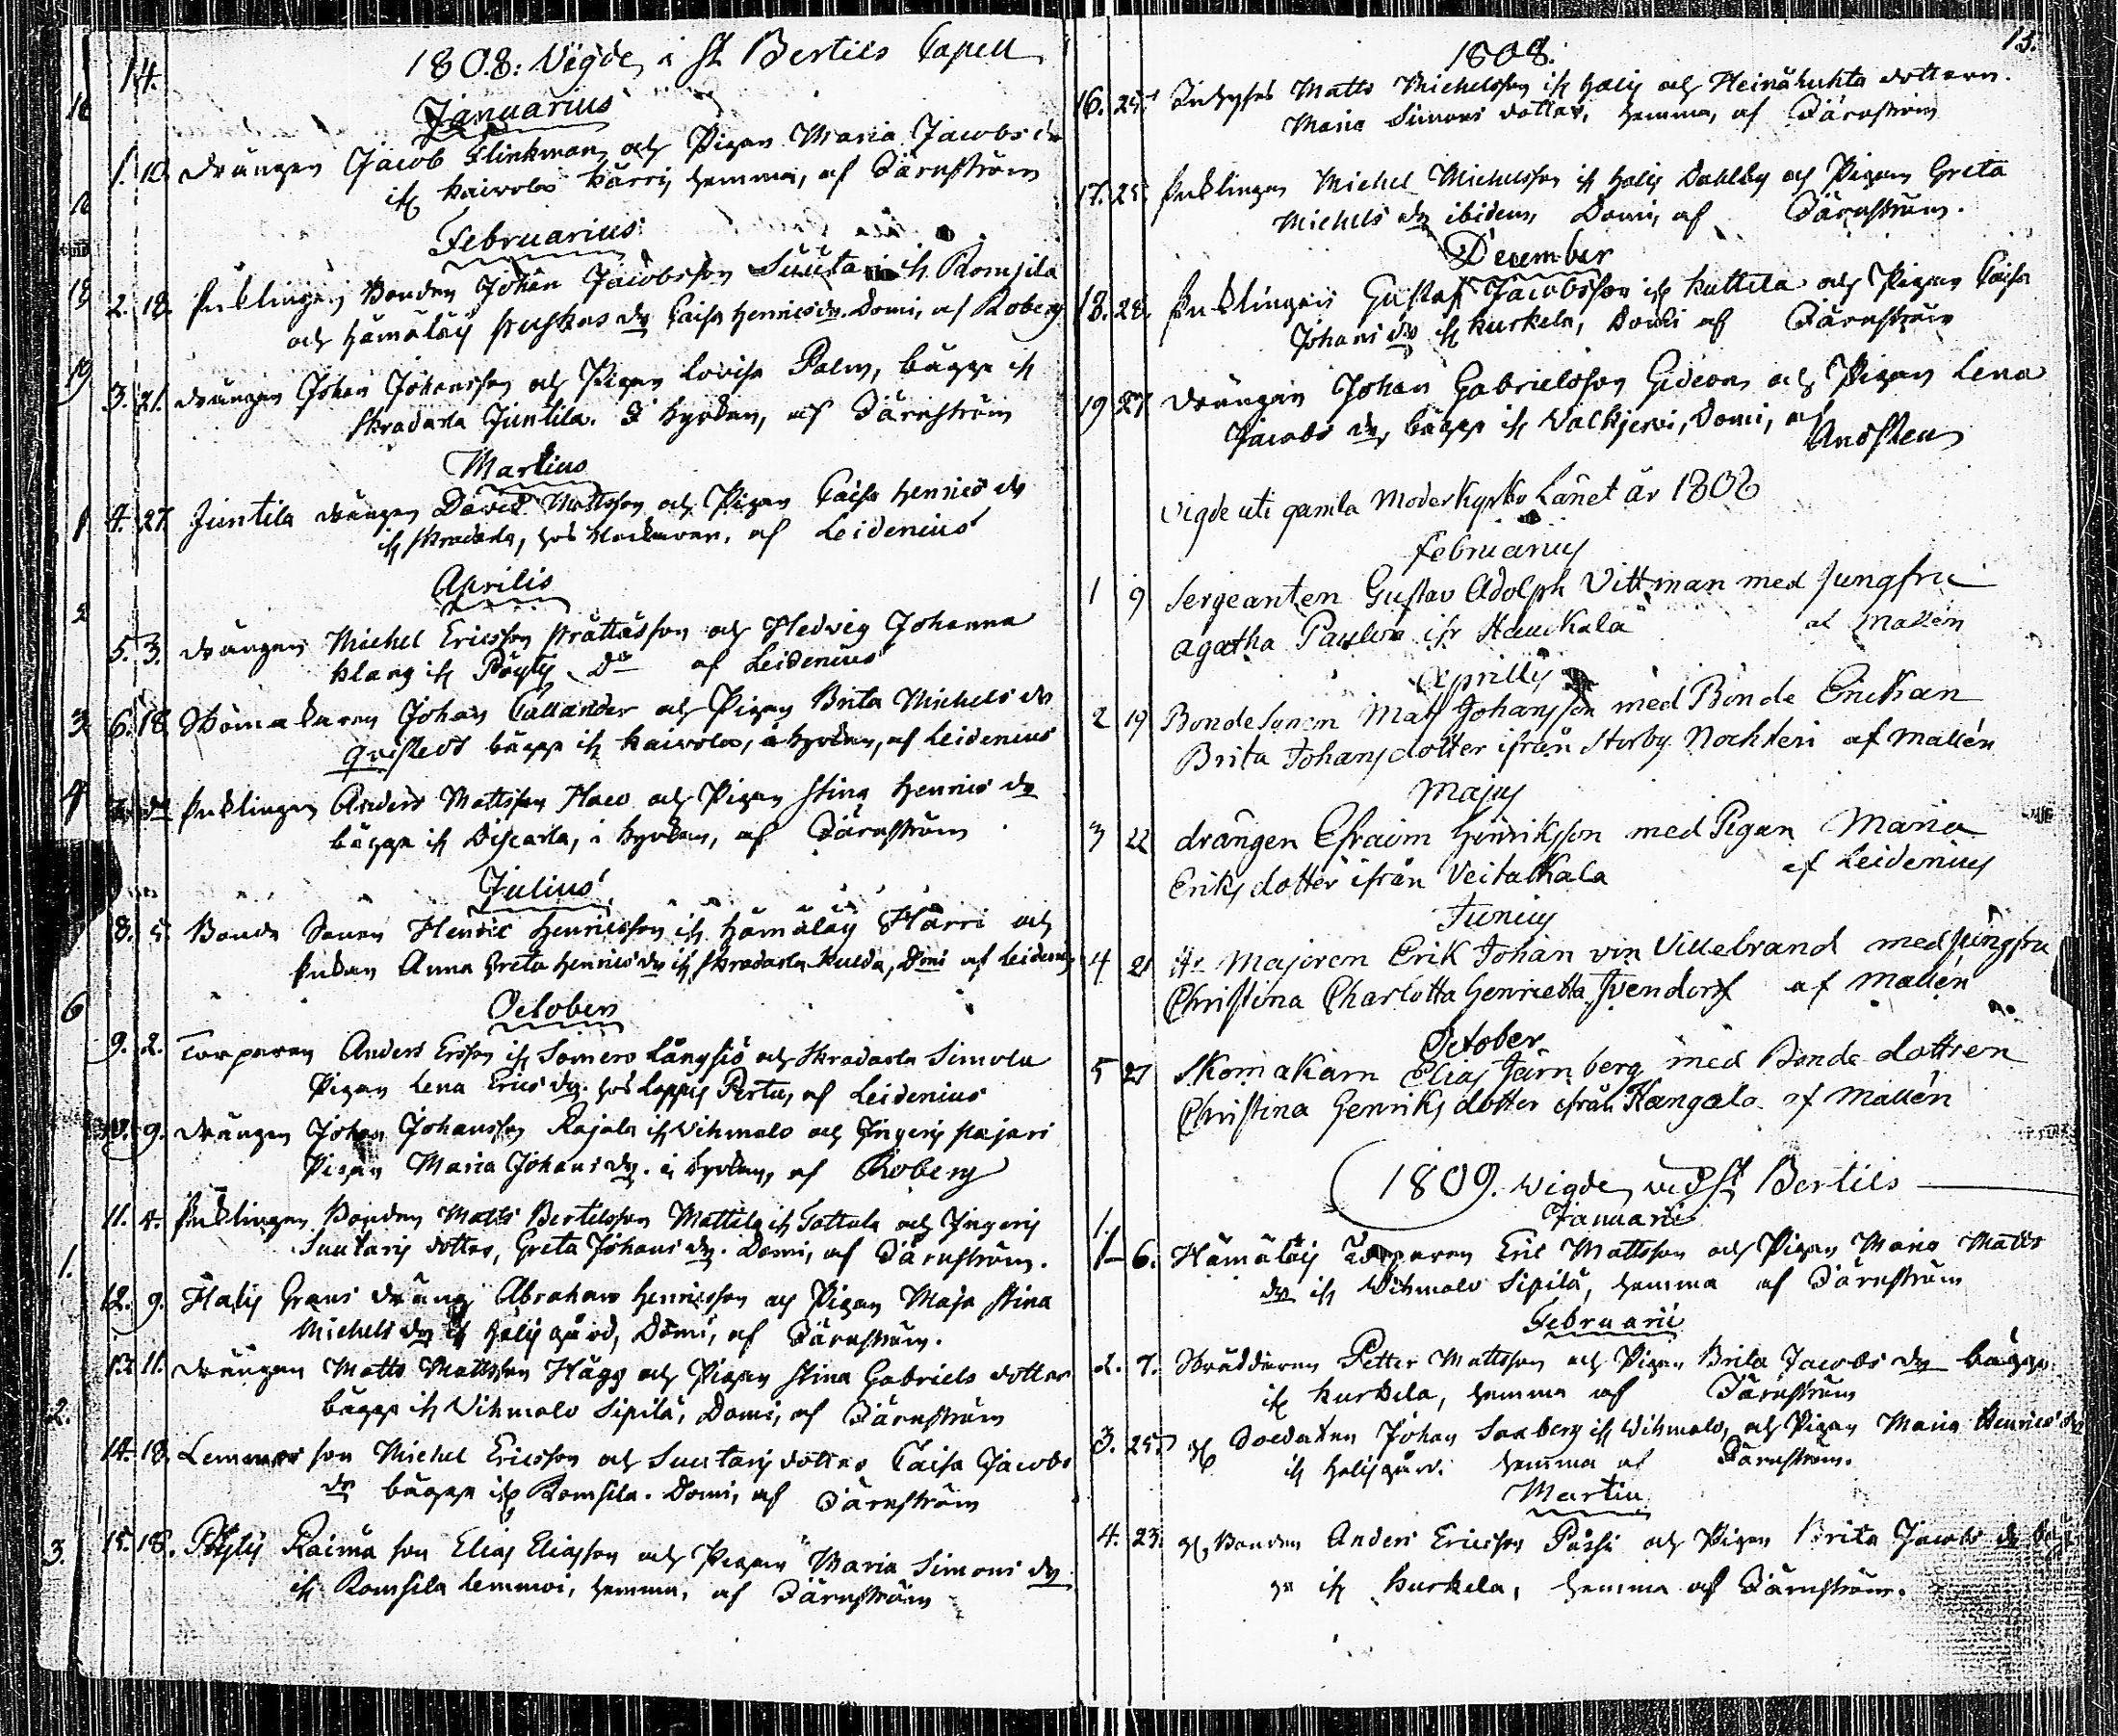 14.
1808: Vigde i St Bertils Capell
Januarius
1. 10. Drängen Jacob Flinkman och Pigan Maria Jacobs dr
ifr Kaivola Härri, hemma, af Järnström
Februarius
2. 18. Änklingen Bonden Johan Jacobsson Suutari ifr Romsila
och Hämäläis dr Caisa Henrics dr. Domi, af Roberg
3. 21. Drängen Johan Johansson och Pigan Lovisa Palm, bägge ifr
Skradarla Juntila. I Kyrkan, af Järnström
Martius
4. 27. Juntila Drängen David Mattsson och Pigan Caisa Henrics dr
ifr Skradarla, hos Klockaren, af Leidenius
Aprilis
5. 3. Drängen Michel Ericsson och Hedvig Johanna
Klang ifr Pöytis Do af Leidenius
6. 18. Skomakaren Johan Callander och Pigan Brita Michels dr
Qvistedt bägge ifr Kaivola, i Kyrkan, af Leidenius
do Änklingen Anders Mattsson och Pigan Stina Henrics dr
bägge ifr Discarla, i Kyrkan, af Järnström
Julius
8. 5. Bonde Sonen Henric Henricsson ifr Hämäläis Härri och
Änkan Anna Greta Henrics dr ifr Skradarla, Domi af Leidenius
October
9. 2. Torparen Anders Ersson ifr Somero Långsjö och Skradarla Simola
Pigan Lena Erics dr. hos Loppis Pertu, af Leidenius
10. 9. Drängen Johan Johansson Rajala ifr Vihmalo och Ingeris Pajari
Pigan Maria Johans dr. i Kyrkan, af Roberg
11. 4. Änklingen Bonden Matts Bertilsson Mattila ifr Tottula och Ingeris
Suutaris dotter, Greta Johans dr. Domi, af Järnström.
12. 9. Halis Grans Dräng Abraham Henricsson och Pigan Maja Stina
Michels dr ifr Halis gård, Domi, af Järnström.
13. 11. Drängen Matts Mattsson Hägg och Pigan Stina Gabriels dotter
bägge ifr Vihmalo Sipilä, Domi, af Järnström
14. 18. Lemmoi son Michel Ericsson och Suutaris dotter Caisa Jacobs
dr bägge ifr Romsila. Domi, af Järnström
15. 18. Pöytis Raimä son Elias Eliasson och Pigan Maria Simons dr
ifr Romsila Lemmoi, hemma, af Järnström
1808.
13.
16. 25. Matts Michelsson ifr Halis och Heinähuhta dottern
Maria Simons dotter, hemma, af Järnström
17. 25. Änklingen Michel Michelsson ifr Halis Dahlby och Pigan Greta
Michels dr ibidem, Domi, af Järnström.
December
18. 28. Änklingen Gustaf Jacobsson ifr Kuttila och Pigan Caisa
Johans dr ifr Kurkela, Domi af Järnström
19 27 Drängen Johan Gabrielsson Gideon och Pigan Lena
Jacobs dr, bägge ifr Valkjervi, Domi, af
Andsten
Vigde uti gamla Moderkyrko Länet år 1808
Februarius
1 9 Sergeanten Gustav Adolph Vittman med Jungfru
Agatha ifr Hauckala af Mallén
Aprillis
2 19 Bonde Sonen Mats Johansson med Bonde Enckan
Brita Johansdotter ifrån Storby Nochteri af Mallén
Majus
3 22 drängen Efraim Henriksson med Pigan Maria
Eriksdotter ifrån Veitakkala af Leidenius
Junius
4 21 Hr Majoren Erik Johan von Villebrand med Jungfru
Christina Charlotta Henrietta af Mallén
October
5 27 Skomakarn Elias Jernberg med Bonde dottren
Christina Henriksdotter ifrån Kangala af Mallén
1809. Vigde, vid St Bertils
Januarii
1. 6. Hämäläis Torparen Eric Mattsson och Pigan Maria Matts
dr ifr Vihmalo Sipilä, hemma af Järnström
Februarii
2. 7. Skräddaren Petter Mattsson och Pigan Brita Jacobs dr bägge
ifr Kurkela, hemma af Järnström
3. 25. Soldaten Johan Saxberg ifr Vihmalo, och Pigan Maria Henrics dr
ifr Halisgård. hemma af Järnström.
Martii
4. 23. Bonden Anders Ericsson Passi och Pigan Brita Jacobs dr bäg-
ge ifr Kurkela, hemma af Järnström.